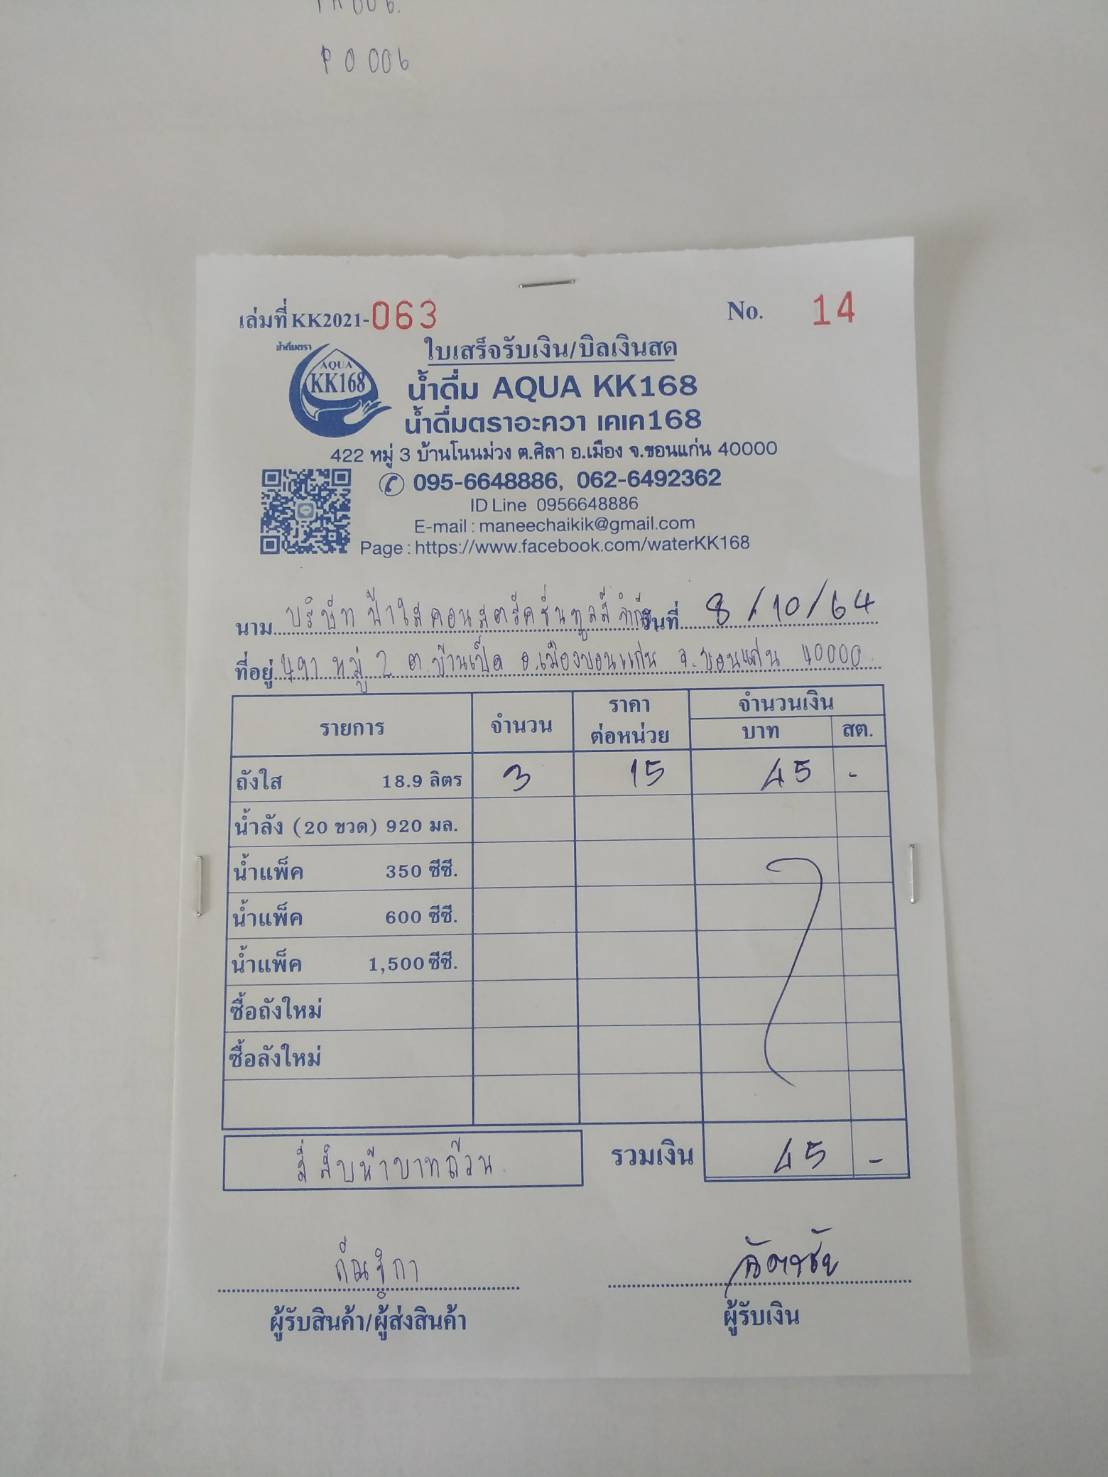 PR006.
PO006
เล่มที่ KK2021-063
No. 14
น้ำดื่มตรา
AQUA
KK168
ใบเสร็จรับเงิน/บิลเงินสด
น้ำดื่ม AQUA KK168
น้ำดื่มตราอะควา เคเค168
422 หมู่ 3 บ้านโนนม่วง ต.ศิลา อ.เมือง จ.ขอนแก่น 40000
095-6648886, 062-6492362
ID Line 0956648886
E-mail : maneechaikik@gmail.com
Page : https://www.facebook.com/waterKK168
นาม บริษัท ฟ้าใสคอนสตรัคชั่นทูลส์ จำกัด วันที่ 8/10/64
ที่อยู่ 491 หมู่ 2 ต.บ้านเป็ด อ.เมืองขอนแก่น จ.ขอนแก่น 40000
รายการ จำนวน ราคาต่อหน่วย จำนวนเงิน
บาท สต.
ถังใส 18.9 ลิตร 3 15 45 -
น้ำลัง (20 ขวด) 920 มล.
น้ำแพ็ค 350 ซีซี.
น้ำแพ็ค 600 ซีซี.
น้ำแพ็ค 1,500 ซีซี.
ซื้อถังใหม่
ซื้อลังใหม่
สี่สิบห้าบาทถ้วน รวมเงิน 45 -
ภัณฐิกา
ผู้รับสินค้า/ผู้ส่งสินค้า ผู้รับเงิน